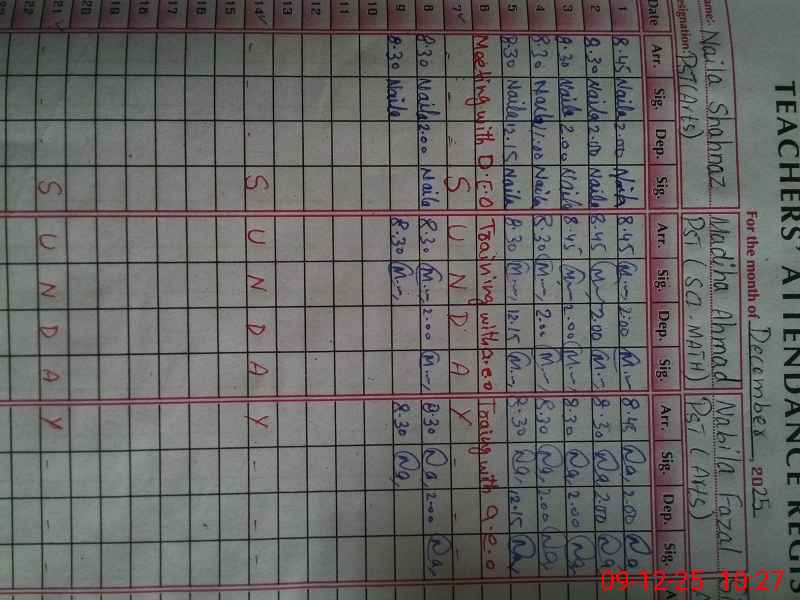 TEACHERS' ATTENDANCE REGIS
For the month of December, 2025
Name: Naila Shahnaz Madiha Ahmad Nabila Fazal
Designation: PST (Arts) PST (Sci. MATH) PST (Arts)
Date Arr. Sig. Dep. Sig. Arr. Sig. Dep. Sig. Arr. Sig. Dep. Sig.
1 8.45 Naila 2.00 Naila 8.45 M 2.00 M 8.45 Na 2.00 Na
2 8.30 Naila 2.00 Naila 8.45 M 2.00 M 8.30 Na 2.00 Na
3 8.30 Naila 2.00 Naila 8.45 M 2.00 M 8.30 Na 2.00 Na
4 8.30 Naila 1.00 Naila 8.30 M 2.00 M 8.30 Na 2.00 Na
5 8.30 Naila 12.15 Naila 8.30 M 12.15 M 8.30 Na 12.15 Na
6 Meeting with D.E.O Training with a.e.o Traing with a.e.o
7 - - - S U N D A Y - - -
8 8.30 Naila 2.00 Naila 8.30 M 2.00 M 8.30 Na 2.00 Na
9 8.30 Naila 8.30 M 8.30 Na
10
11
12
13
14 - - - S U N D A Y - - -
15
16
17
18
19
20
21 - - - S U N D A Y - - -
22
09-12-25 10:27